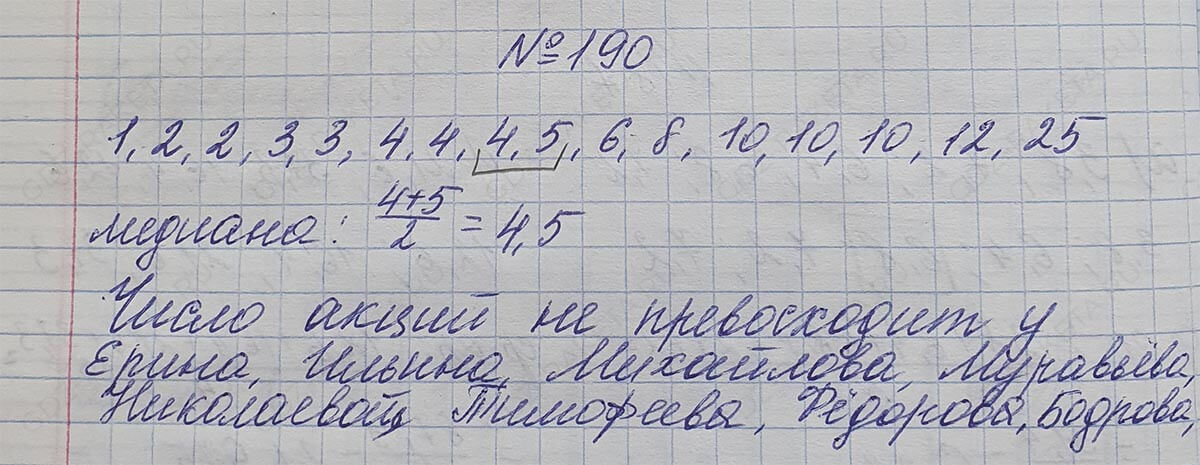 №190
1, 2, 2, 3, 3, 4, 4, 4, 5, 6, 8, 10, 10, 10, 12, 25
медиана: (4+5)/2 = 4,5
Число акций не превосходит у
Ерина, Ильина, Михайлова, Муравьёва,
Николаевой, Тимофеева, Фёдорова, Бодрова,